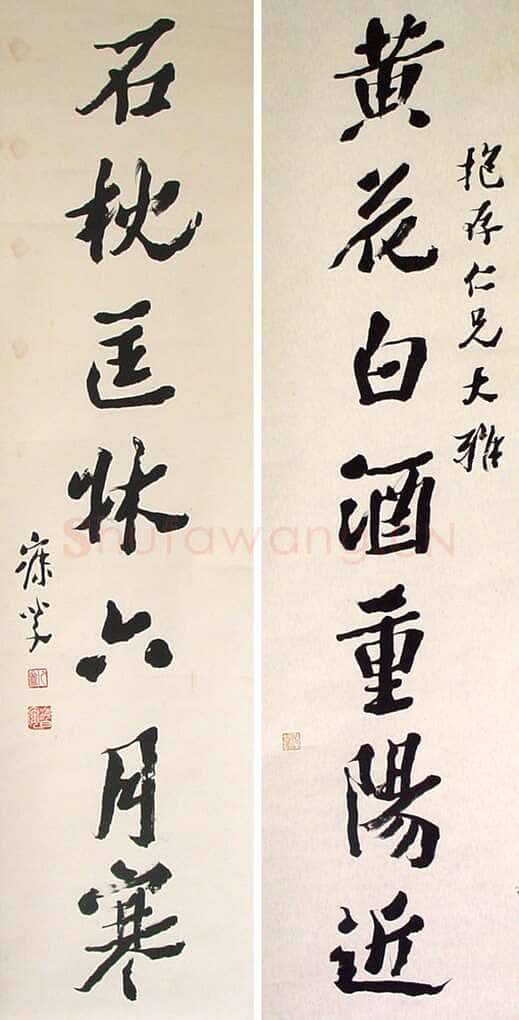 抱存仁兄大雅
黄花白酒重陽近
石枕匡牀六月寒
寐叟
Shufawang.CN